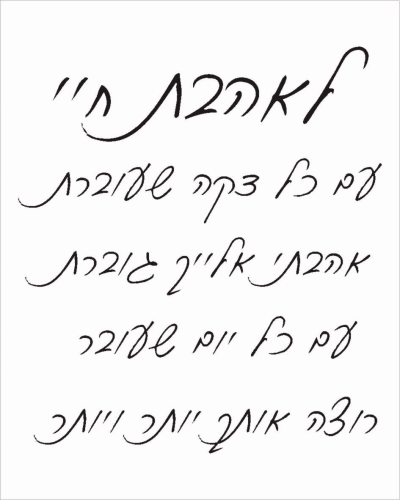 לאהבת חיי
עם כל דקה שעוברת
אהבתי אלייך גוברת
עם כל יום שעובר
רוצה אותך יותר ויותר